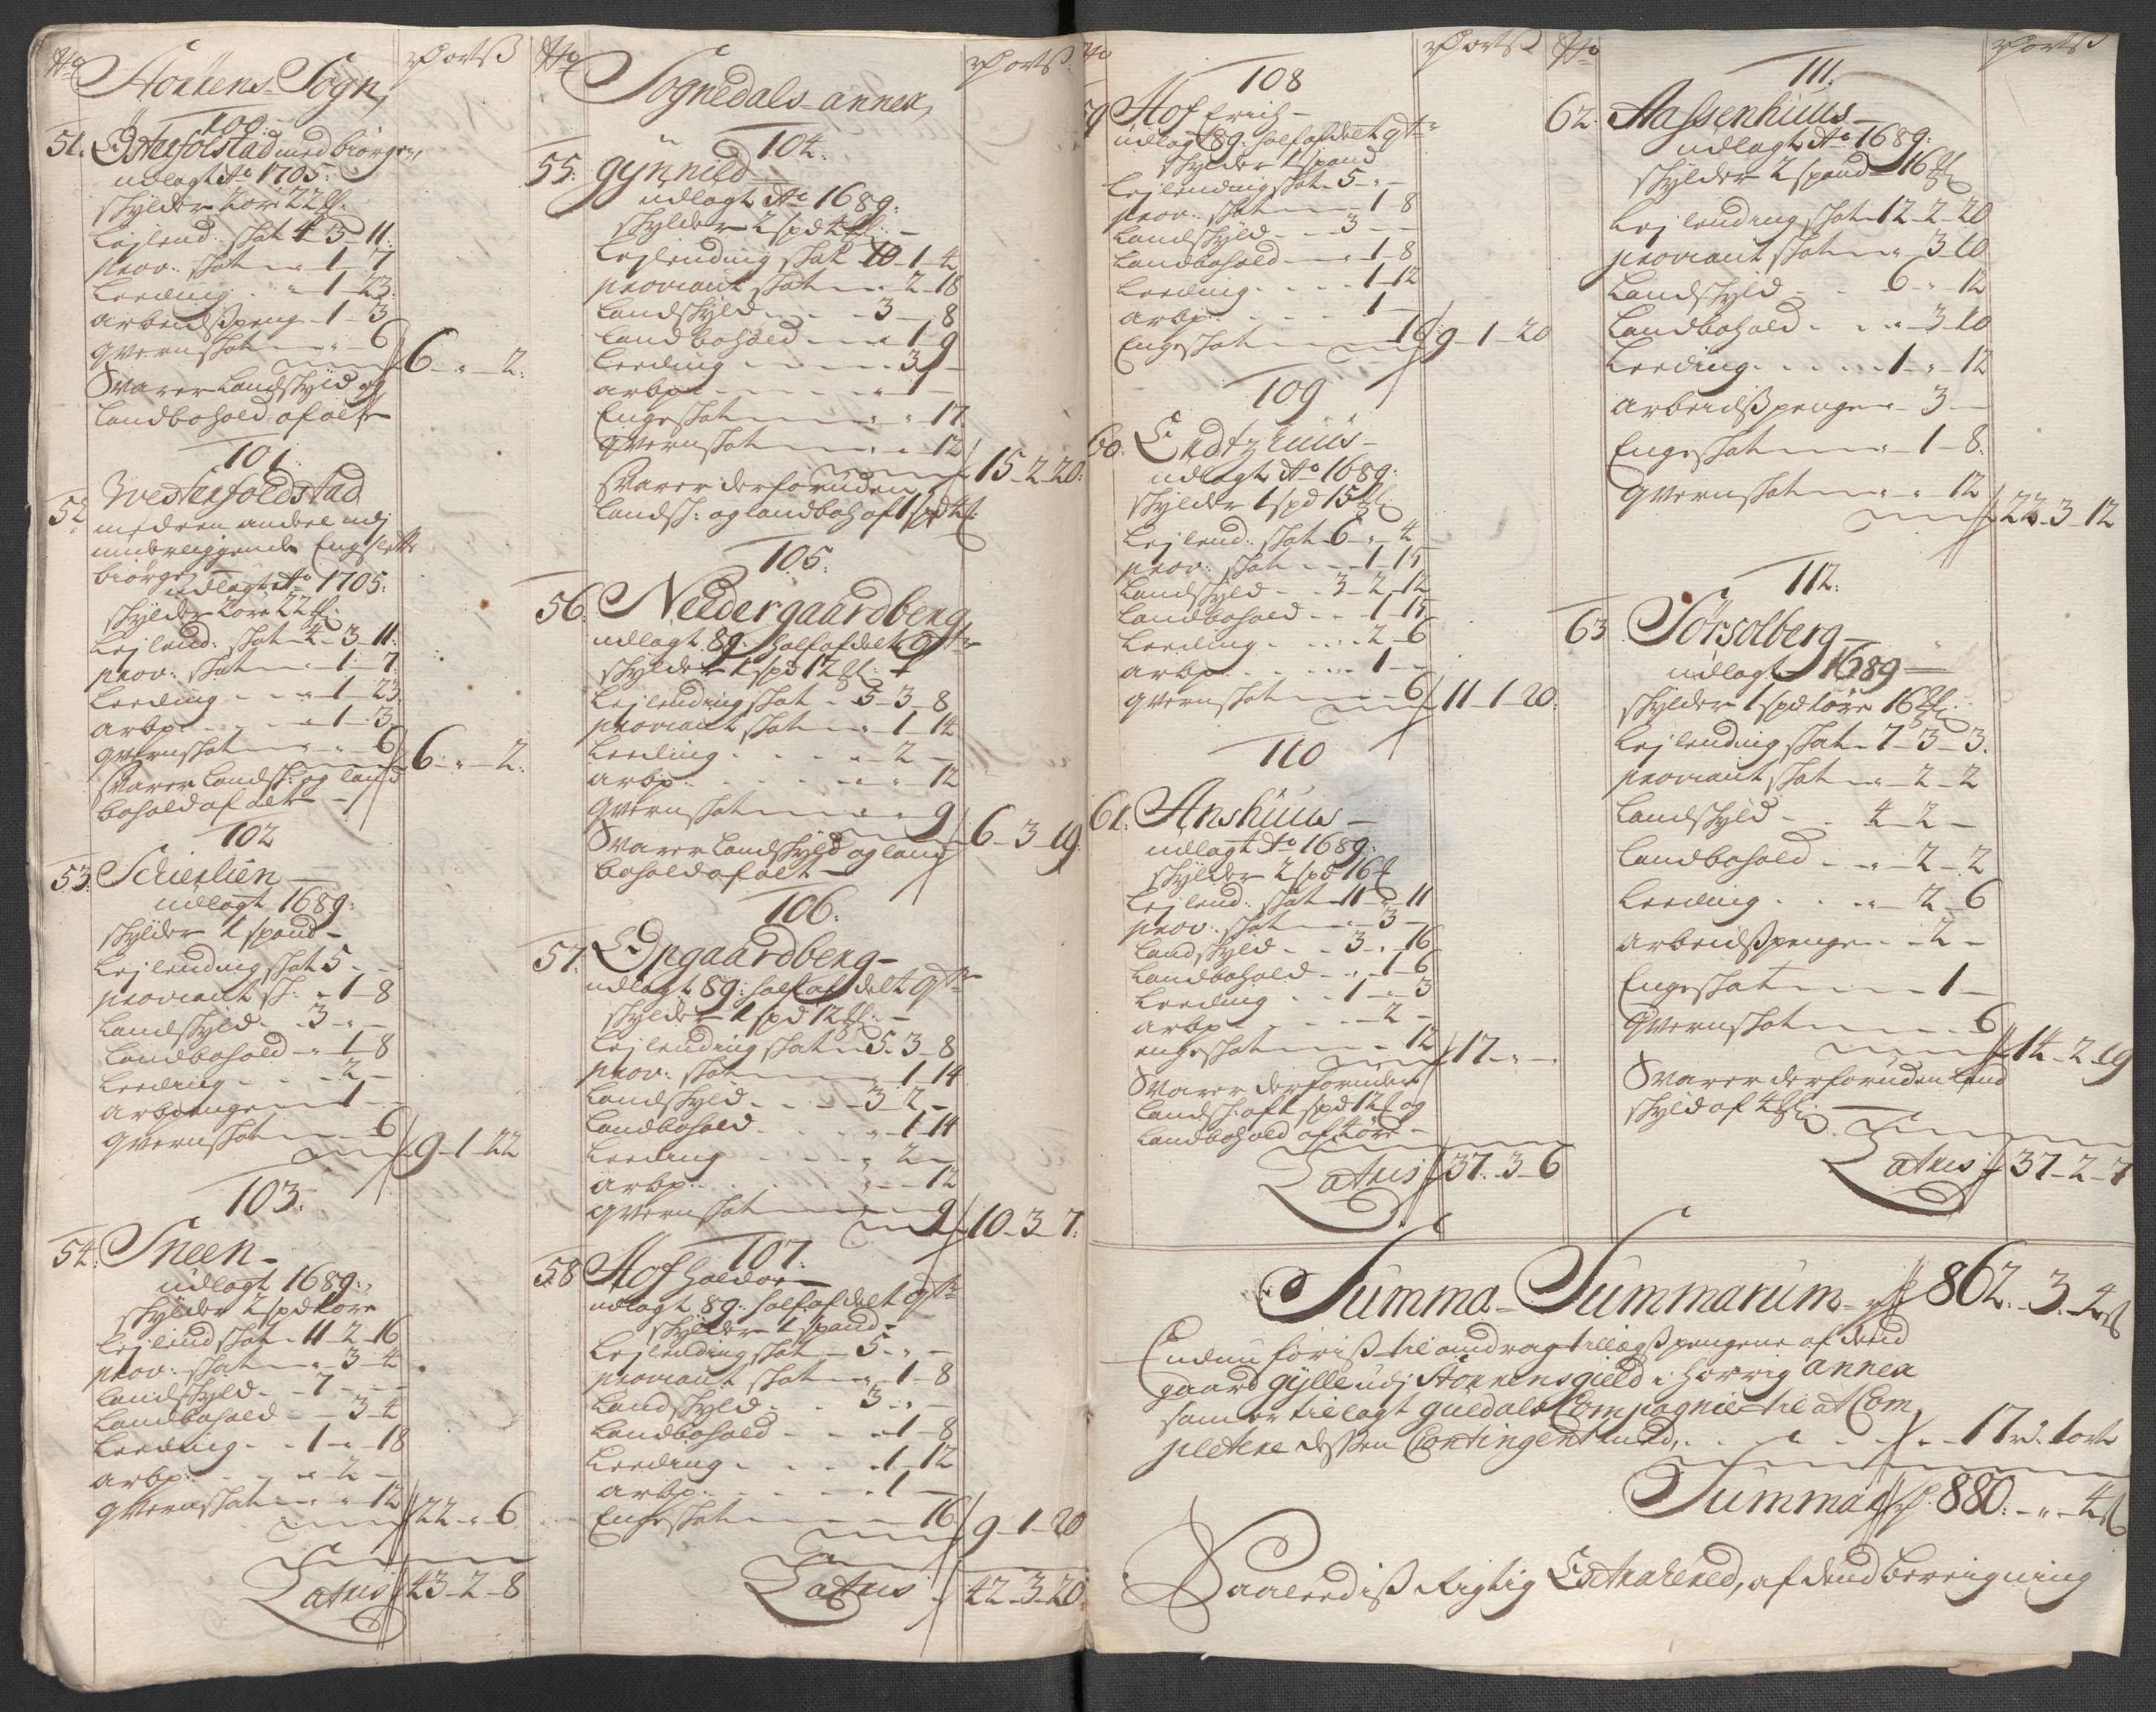 No
Støhrens Sogn
Ports
100.
51. Østerfolstad med biørgen,
udlagt Ao 1705:
skylder 2 øre 22 ℔.
Leylend: skat 4 - 3 - 11:
prov: skat - " - 1 - 7
Leeding - " - 1 - 23:
arbeidspeng - 1 - 3
qvernskat - " - " - 6 6 - " - 2:
Svarer Landskyld og
Landbohold af alt
101.
52. Westerfoldstad
med een anden udj
underliggende Engslette
biørgen
udlagt Ao 1705:
skylder 2 øre 22 ℔:
Leylend: skat 4 - 3 - 11:
prov: skat - " - 1 - 7.
Leeding - " - 1 - 23.
arbp: - " - 1 - 3.
qvernskat - " - " - 6 6 - " - 2:
Svarer Landsk: og land
bohold af alt -
102
53. Schierlien -
udlagt 1689:
skylder 1 spand -
Leylending skat 5 - " -
proviant sk: - " - 1 - 8
Landskyld - 3 - " -
Landbohold - " - 1 - 8
Leeding - - 2 -
arbpenge - 1 -
qvernskat - - 6 9 - 1 - 22
103.
54. Sneen -
udlagt 1689:
skylder 2 spd 1 øre
Leylend skat - 11 - 2 - 16
prov: skat - " - 3 - 4
Landskyld - 7 - - -
Landbohold - - 3 - 4
Leeding - 1 - " - 18
arbp: - " - 2 -
qvernskat - " - " - 12 22 - " - 6
Latus 43 - 2 - 8
No
Sognedals annex,
Ports
104.
55. gynnild
udlagt Ao 1689:
skylder 2 spd 4 ℔: -
Leylending skat 10 - 1 - 4
proviant skat - " - 2 - 18
Landskyld - 3 - - 8
Landbohold - - 1 - 9
Leeding - - 3 -
arbp: - " - 1 -
Engeskat - " - " - 17
qvernskat - " - " - 12 15 - 2 - 20:
Svarer derforuden
Landsk: og landboh af 1 spd 4 ℔
105.
56. Nedergaardberg
udlagt 89: half afdelt
skylder 1 spd 12 ℔: -
Leylending skat - 5 - 3 - 8
proviant skat - " - 1 - 14
Leeding - " - 2 -
arbp: - " - " - 12
qvernskat - " - " - 9 6 - 3 - 19.
Svarer Landskyld og land
bohold af alt -
106:
57. Opgaardberg -
udlagt 89: half afdelt
skylder 1 spd 12 ℔: -
Leylending skat - 5 - 3 - 8
prov: skat - " - 1 - 14
Landskyld - - 3 - 2 -
Landbohold - " - 1 - 14
Leeding - " - 2 -
arbp: - " - - 12
qvernskat - - 9 10 - 3 - 7:
107.
58 Hof haldor -
udlagt 89: half afdelt
skylder 1 spand -
Leylending skat - 5 - " -
proviant skat - " - 1 - 8
Landskyld - 3 - " -
Landbohold - - 1 - 8
Leeding - - 1 - 12
arbp: - - 1 -
Engeskat - - 16 9 - 1 - 20
Latus 42 - 3 - 20:
No
Ports
108
59 Hof Erich -
udlagt 89: half afdelt
skylder 1 spand
Leylending skat - 5 - " -
prov: skat - - 1 - 8
Landskyld - - 3 - -
Landbohold - " - 1 - 8
Leeding - - 1 - 12
arbp: - - 1 -
Engeskat - - 16 9 - 1 - 20
109
60. Endtzhuus -
udlagt Ao 1689:
skylder 1 spd 15 ℔.
Leylend: skat - 6 - " - 4
prov: skat - - 1 - 15
Landskyld - 3 - 2 - 12
Landbohold - - 1 - 15
Leeding - - 2 - 6
arbp: - - 1 -
qvernskat - - 6 11 - 1 - 20.
110
61. Anshuus -
udlagt Ao 1689:
skylder 2 spd 16 ℔
Leylend: skat - 11 - " - 11
prov: skat - - 3 -
Landskyld - 3 - " - 16
Landbohold - " - 1 - 6
Leeding - 1 - " - 3
arbp - - 2 -
engeskat - - 12 17 - " -
Svarer derforuden
Landsk: af 1 spd 12 ℔ og
Landbohold af 4 øre -
Latus 37 - 3 - 6
No
Ports
111.
62. Aassenhuus -
udlagt Ao 1689:
skylder 2 spand 16 ℔
Leylending skat 12 - 2 - 20
proviant skat - " - 3 - 10
Landskyld - 6 - " - 12
Landbohold - " - 3 - 10
Leeding - 1 - " - 12
arbeidspenge - 3 -
Engeskat - " - 1 - 8.
qvernskat - " - " - 12 22 - 3 - 12
112.
63 Sørsolberg -
udlagt 1689 -
skylder 1 spd 1 øre 16 ℔.
Leylending skat - 7 - 3 - 3.
proviant skat - " - 2 - 2
Landskyld - 4 - 2 -
Landbohold - " - 2 - 2
Leeding - " - 2 - 6
arbeidspenge - - 2 -
Engeskat - - 1 -
qvernskat - - 6 14 - 2 - 19
Svarer derforuden land
skyld af 4 ℔:
Latus 37 - 2 - 7
Summa Summarum - 862 - 3 - 4 ß
Endnu føris til andrag tillegs pengene af dend
gaard gylle udj Størrens gield i horrig annex
som er tillagt guldals Compagnie til at Com
pletere dessen Contingent med, - 17 rd. 1 ort
Summa 880: - " - 4 ß
Saaledis Rigtig Extrahered, af dend bereigning